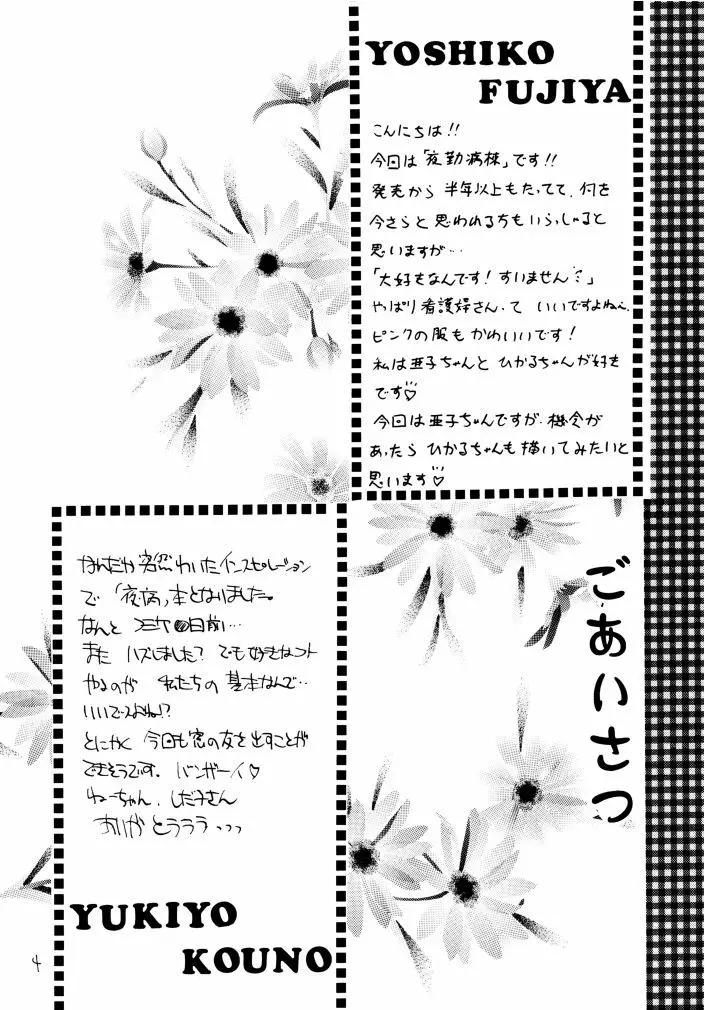 YOSHIKO
FUJIYA
こんにちは!!
今回は「夜勤病棟」です!!
発売から半年以上もたってて、何を
今さらと思われる方もいらっしゃると
思いますが…
「大好きなんです!すいません」
やっぱり看護婦さんって いいですよねぇ
ピンクの服もかわいいです!
私は亜子ちゃんと ひかるちゃんが好き
です♡
今回は亜子ちゃんですが、機会が
あったら ひかるちゃんも描いてみたいと
思います♡
ごあいさつ
なんだか突然わいたインスピレーション
で「夜病」本となりました。
なんと コミケ日前…
また ハズしました?でも好きなコト
やるのが 私たちの基本なんで…
いいですよね!?
とにかく 今回も窓の友を出すことが
できそうです。バンザーイ♡
ねーちゃん、しだ子さん
ありがとうううっっっ
YUKIYO
KOUNO
4